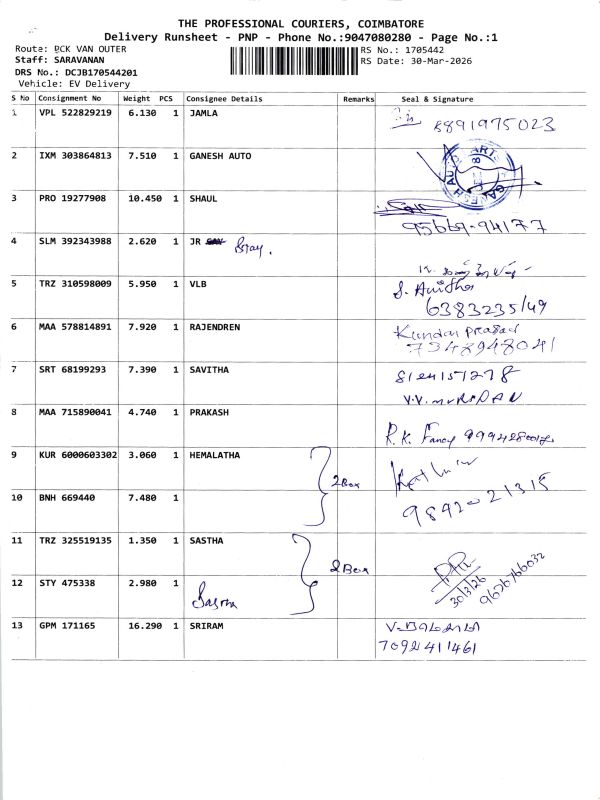 THE PROFESSIONAL COURIERS, COIMBATORE
Delivery Runsheet - PNP - Phone No.:9047080280 - Page No.:1
Route: PCK VAN OUTER
RS No.: 1705442
Staff: SARAVANAN
RS Date: 30-Mar-2026
DRS No.: DCJB170544201
Vehicle: EV Delivery
S No Consignment No Weight PCS Consignee Details Remarks Seal & Signature
1 VPL 522829219 6.130 1 JAMLA
8891975023
2 IXM 303864813 7.510 1 GANESH AUTO
GANESH AUTO PARTS
3 PRO 19277908 10.450 1 SHAUL
95669-94177
4 SLM 392343988 2.620 1 JR
5 TRZ 310598009 5.950 1 VLB
S. Anitha
6383235149
6 MAA 578814891 7.920 1 RAJENDREN
Kundan Prasad
7348948041
7 SRT 68199293 7.390 1 SAVITHA
8124157278
8 MAA 715890041 4.740 1 PRAKASH
R.K. Fancy
9 KUR 6000603302 3.060 1 HEMALATHA
2 Box
10 BNH 669440 7.480 1
9892021315
11 TRZ 325519135 1.350 1 SASTHA
2 Box
12 STY 475338 2.980 1
30/3/26
9626766032
13 GPM 171165 16.290 1 SRIRAM
7092411461